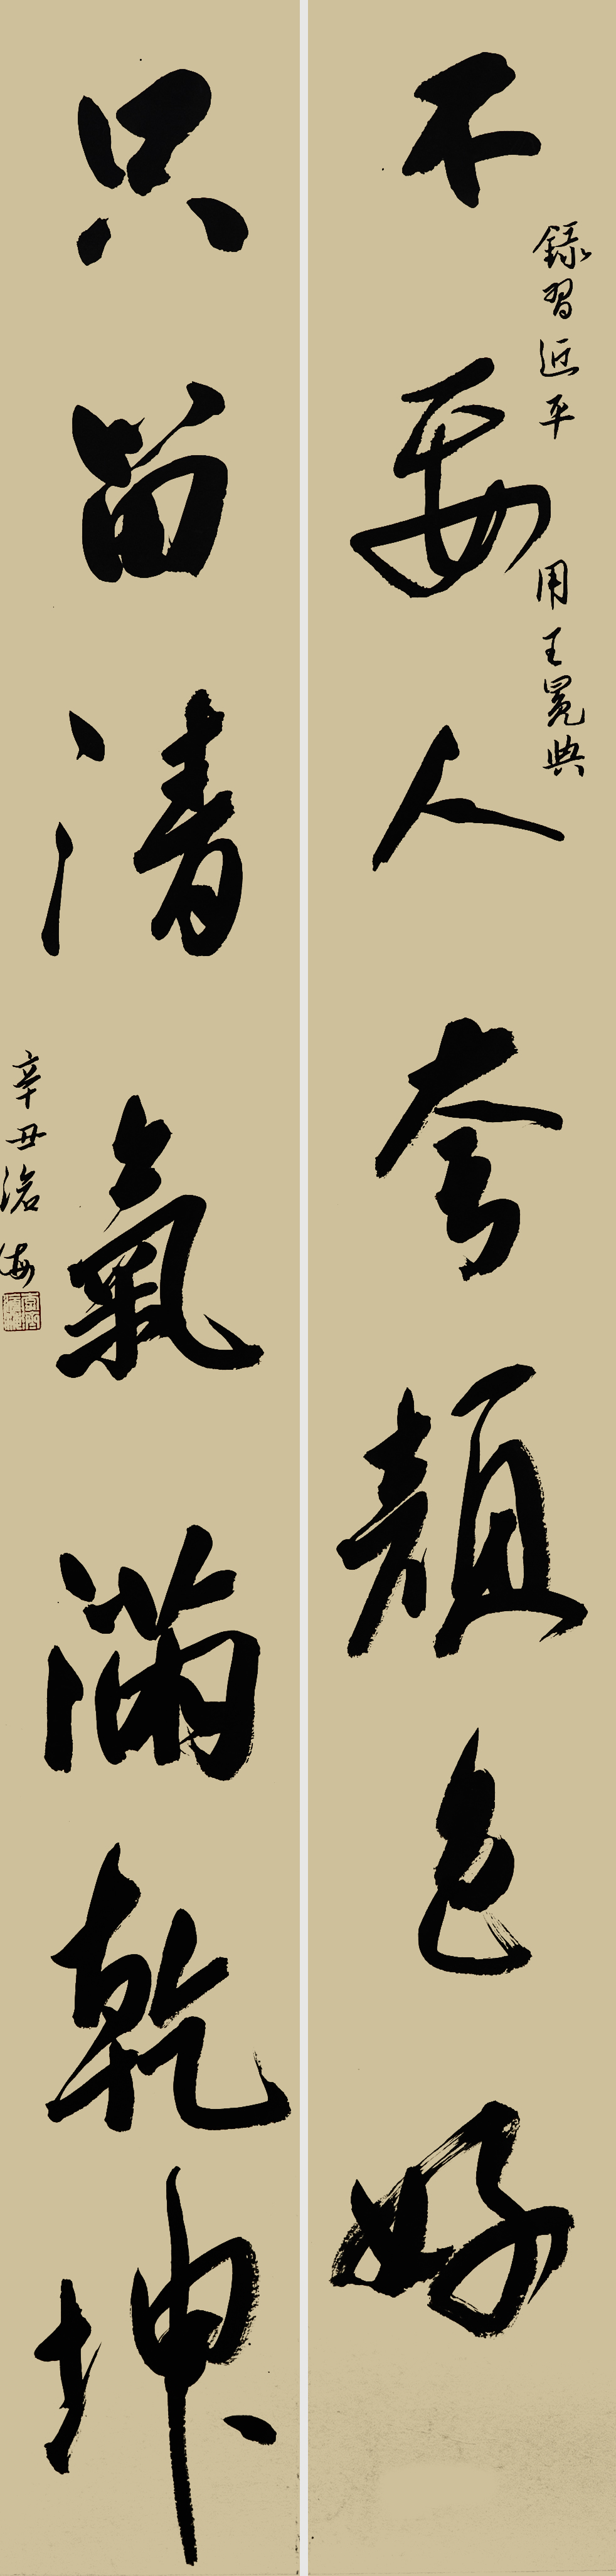 不要人夸顏色好
錄習近平 用王冕典
只留清氣滿乾坤
辛丑滄海